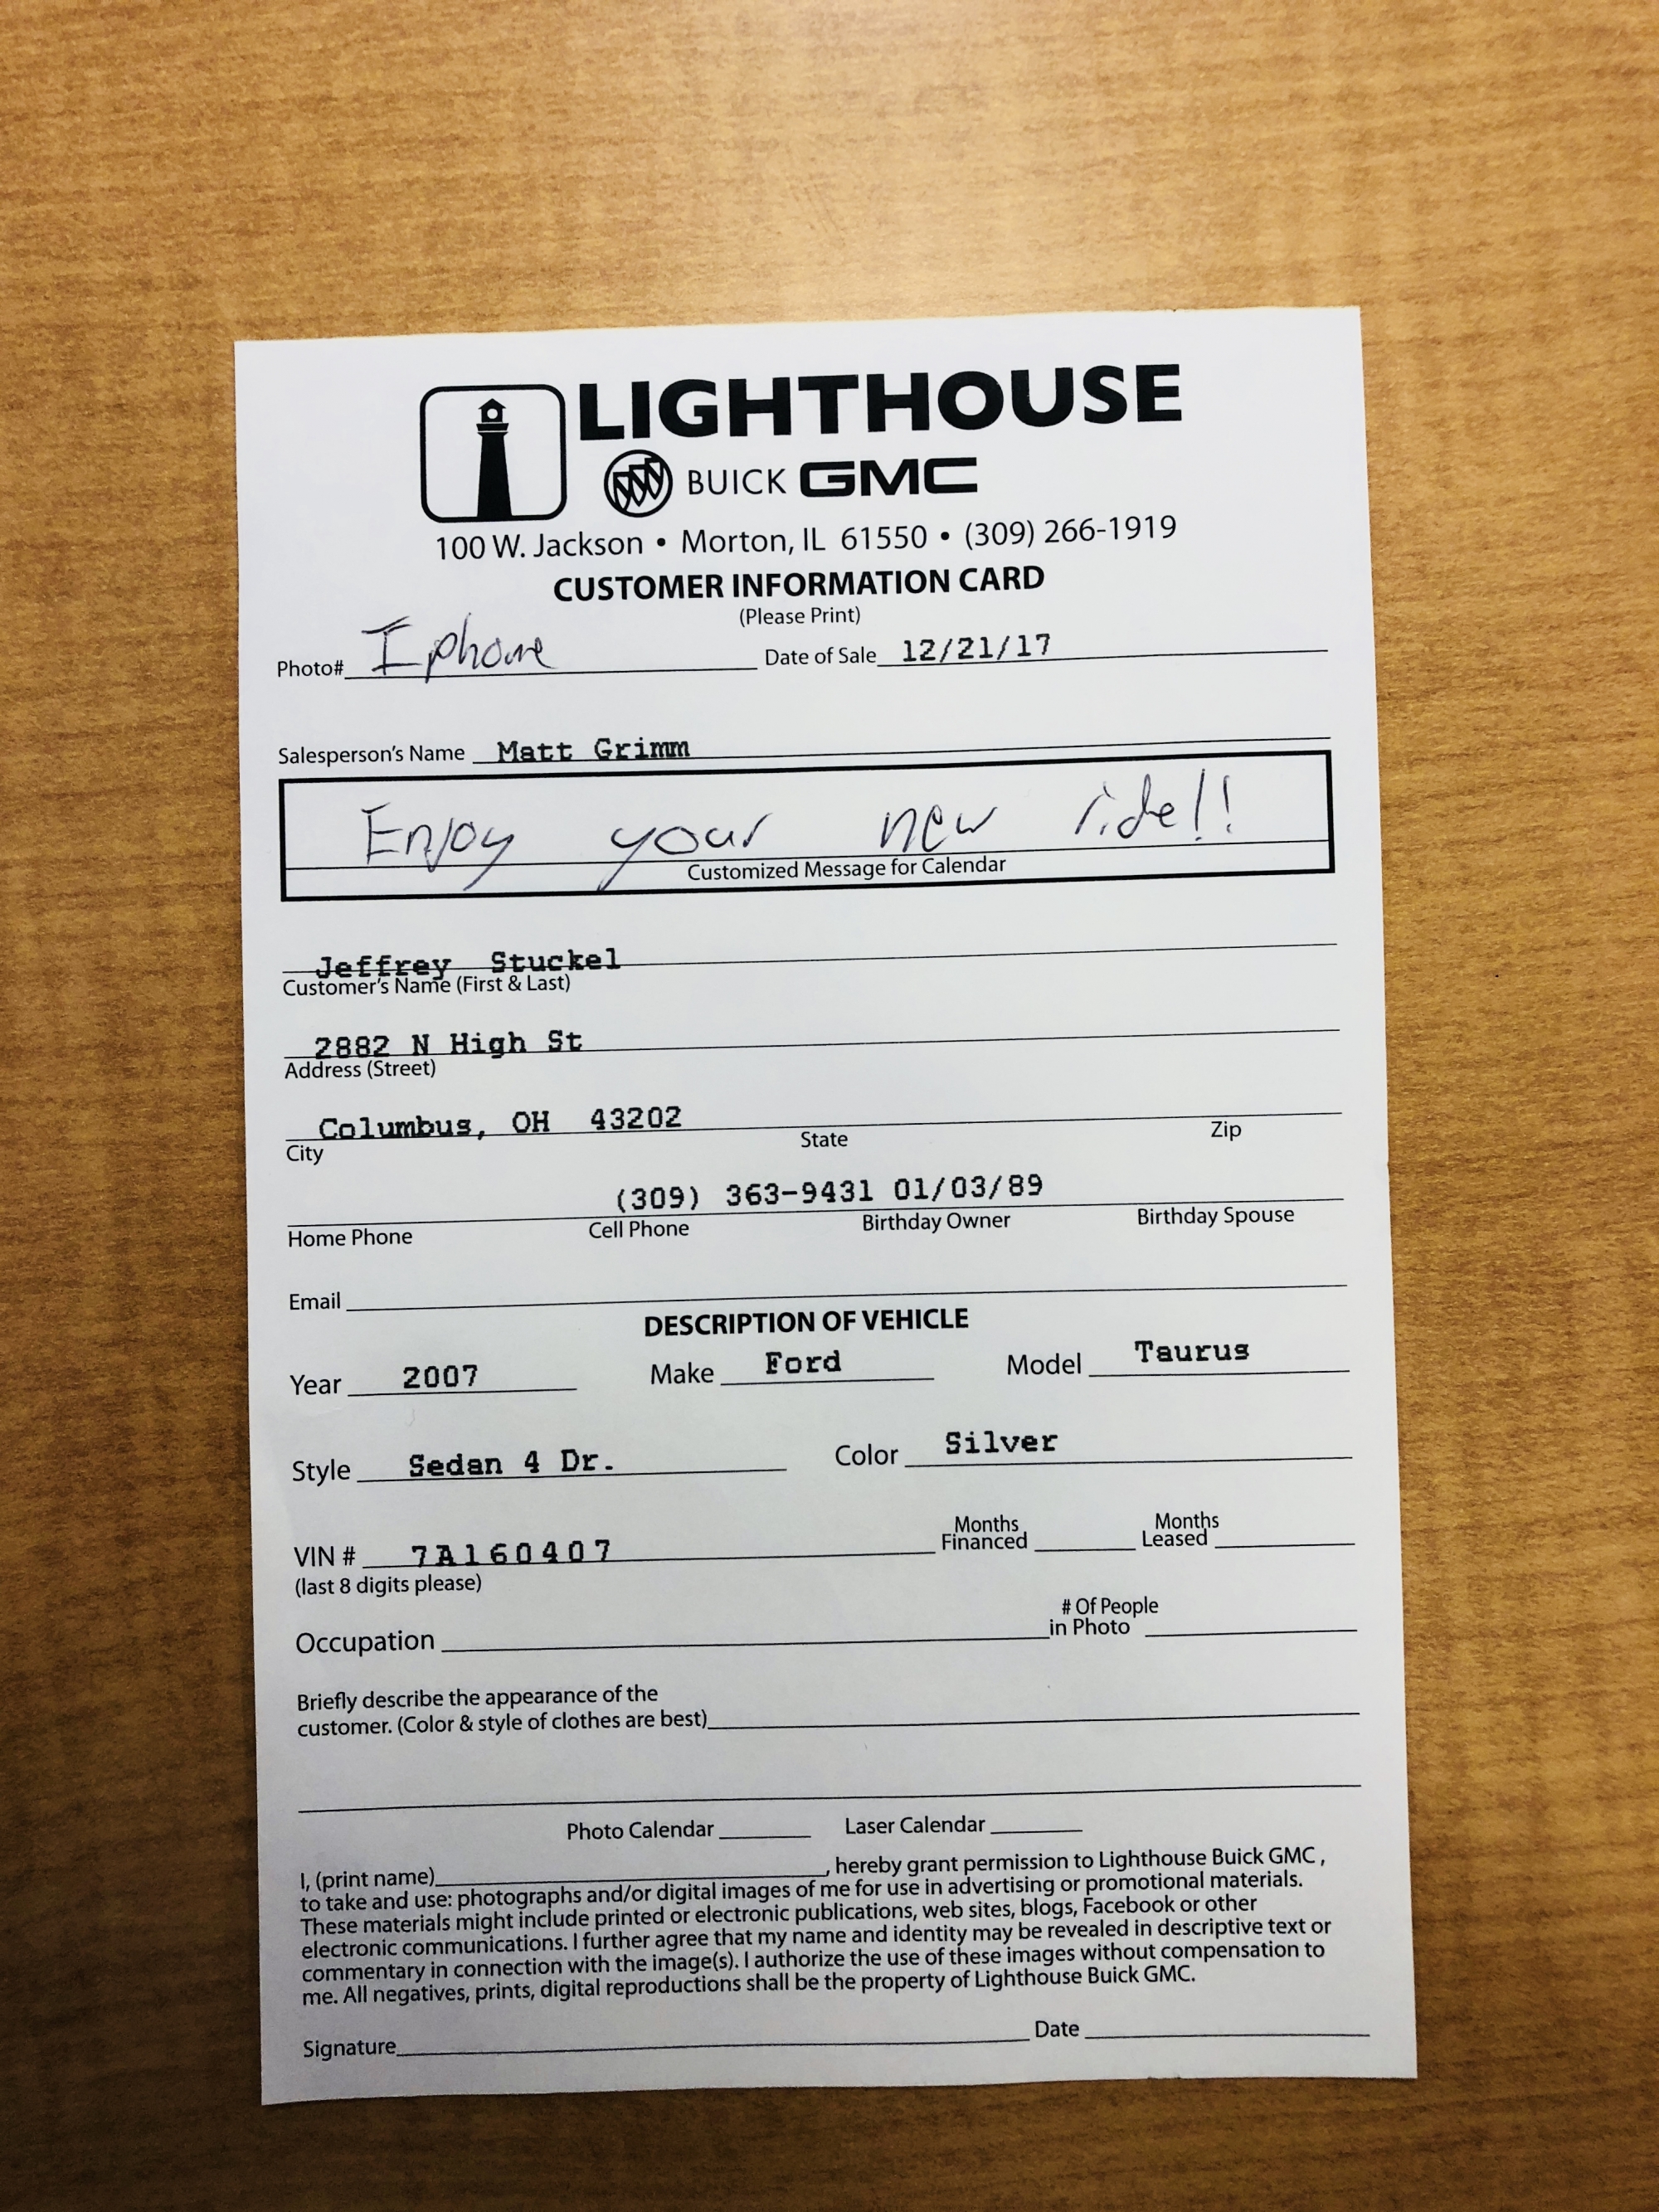 LIGHTHOUSE
BUICK GMC
100 W. Jackson • Morton, IL 61550 • (309) 266-1919
CUSTOMER INFORMATION CARD
(Please Print)
Photo# Iphone Date of Sale 12/21/17
Salesperson's Name Matt Grimm
Enjoy your new ride!!
Customized Message for Calendar
Jeffrey Stuckel
Customer's Name (First & Last)
2882 N High St
Address (Street)
Columbus, OH 43202
City State Zip
(309) 363-9431 01/03/89
Home Phone Cell Phone Birthday Owner Birthday Spouse
Email
DESCRIPTION OF VEHICLE
Year 2007 Make Ford Model Taurus
Style Sedan 4 Dr. Color Silver
VIN # 7A160407 Months Financed Months Leased
(last 8 digits please)
Occupation # Of People in Photo
Briefly describe the appearance of the
customer. (Color & style of clothes are best)
Photo Calendar Laser Calendar
I, (print name) , hereby grant permission to Lighthouse Buick GMC ,
to take and use: photographs and/or digital images of me for use in advertising or promotional materials.
These materials might include printed or electronic publications, web sites, blogs, Facebook or other
electronic communications. I further agree that my name and identity may be revealed in descriptive text or
commentary in connection with the image(s). I authorize the use of these images without compensation to
me. All negatives, prints, digital reproductions shall be the property of Lighthouse Buick GMC.
Signature Date